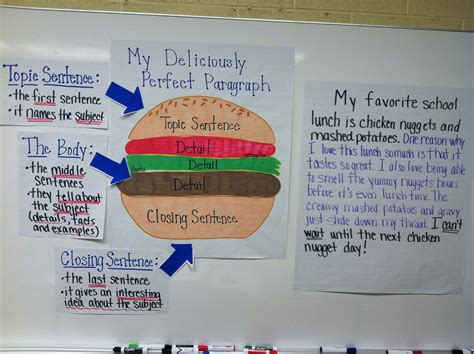 Topic Sentence:
• the first sentence
• it names the subject
The Body:
• the middle
sentences
• they tell about
the subject
(details, facts
and examples)
Closing Sentence:
• the last sentence
• it gives an interesting
idea about the subject
My Deliciously
Perfect Paragraph
Topic Sentence
Detail
Detail
Detail
Closing Sentence
My favorite school
lunch is chicken nuggets and
mashed potatoes. One reason why
I love this lunch so much is that it
tastes so great. I also love being able
to smell the yummy nuggets hours
before it's even lunch time. The
creamy mashed potatoes and gravy
just slide down my throat. I can't
wait until the next chicken
nugget day!